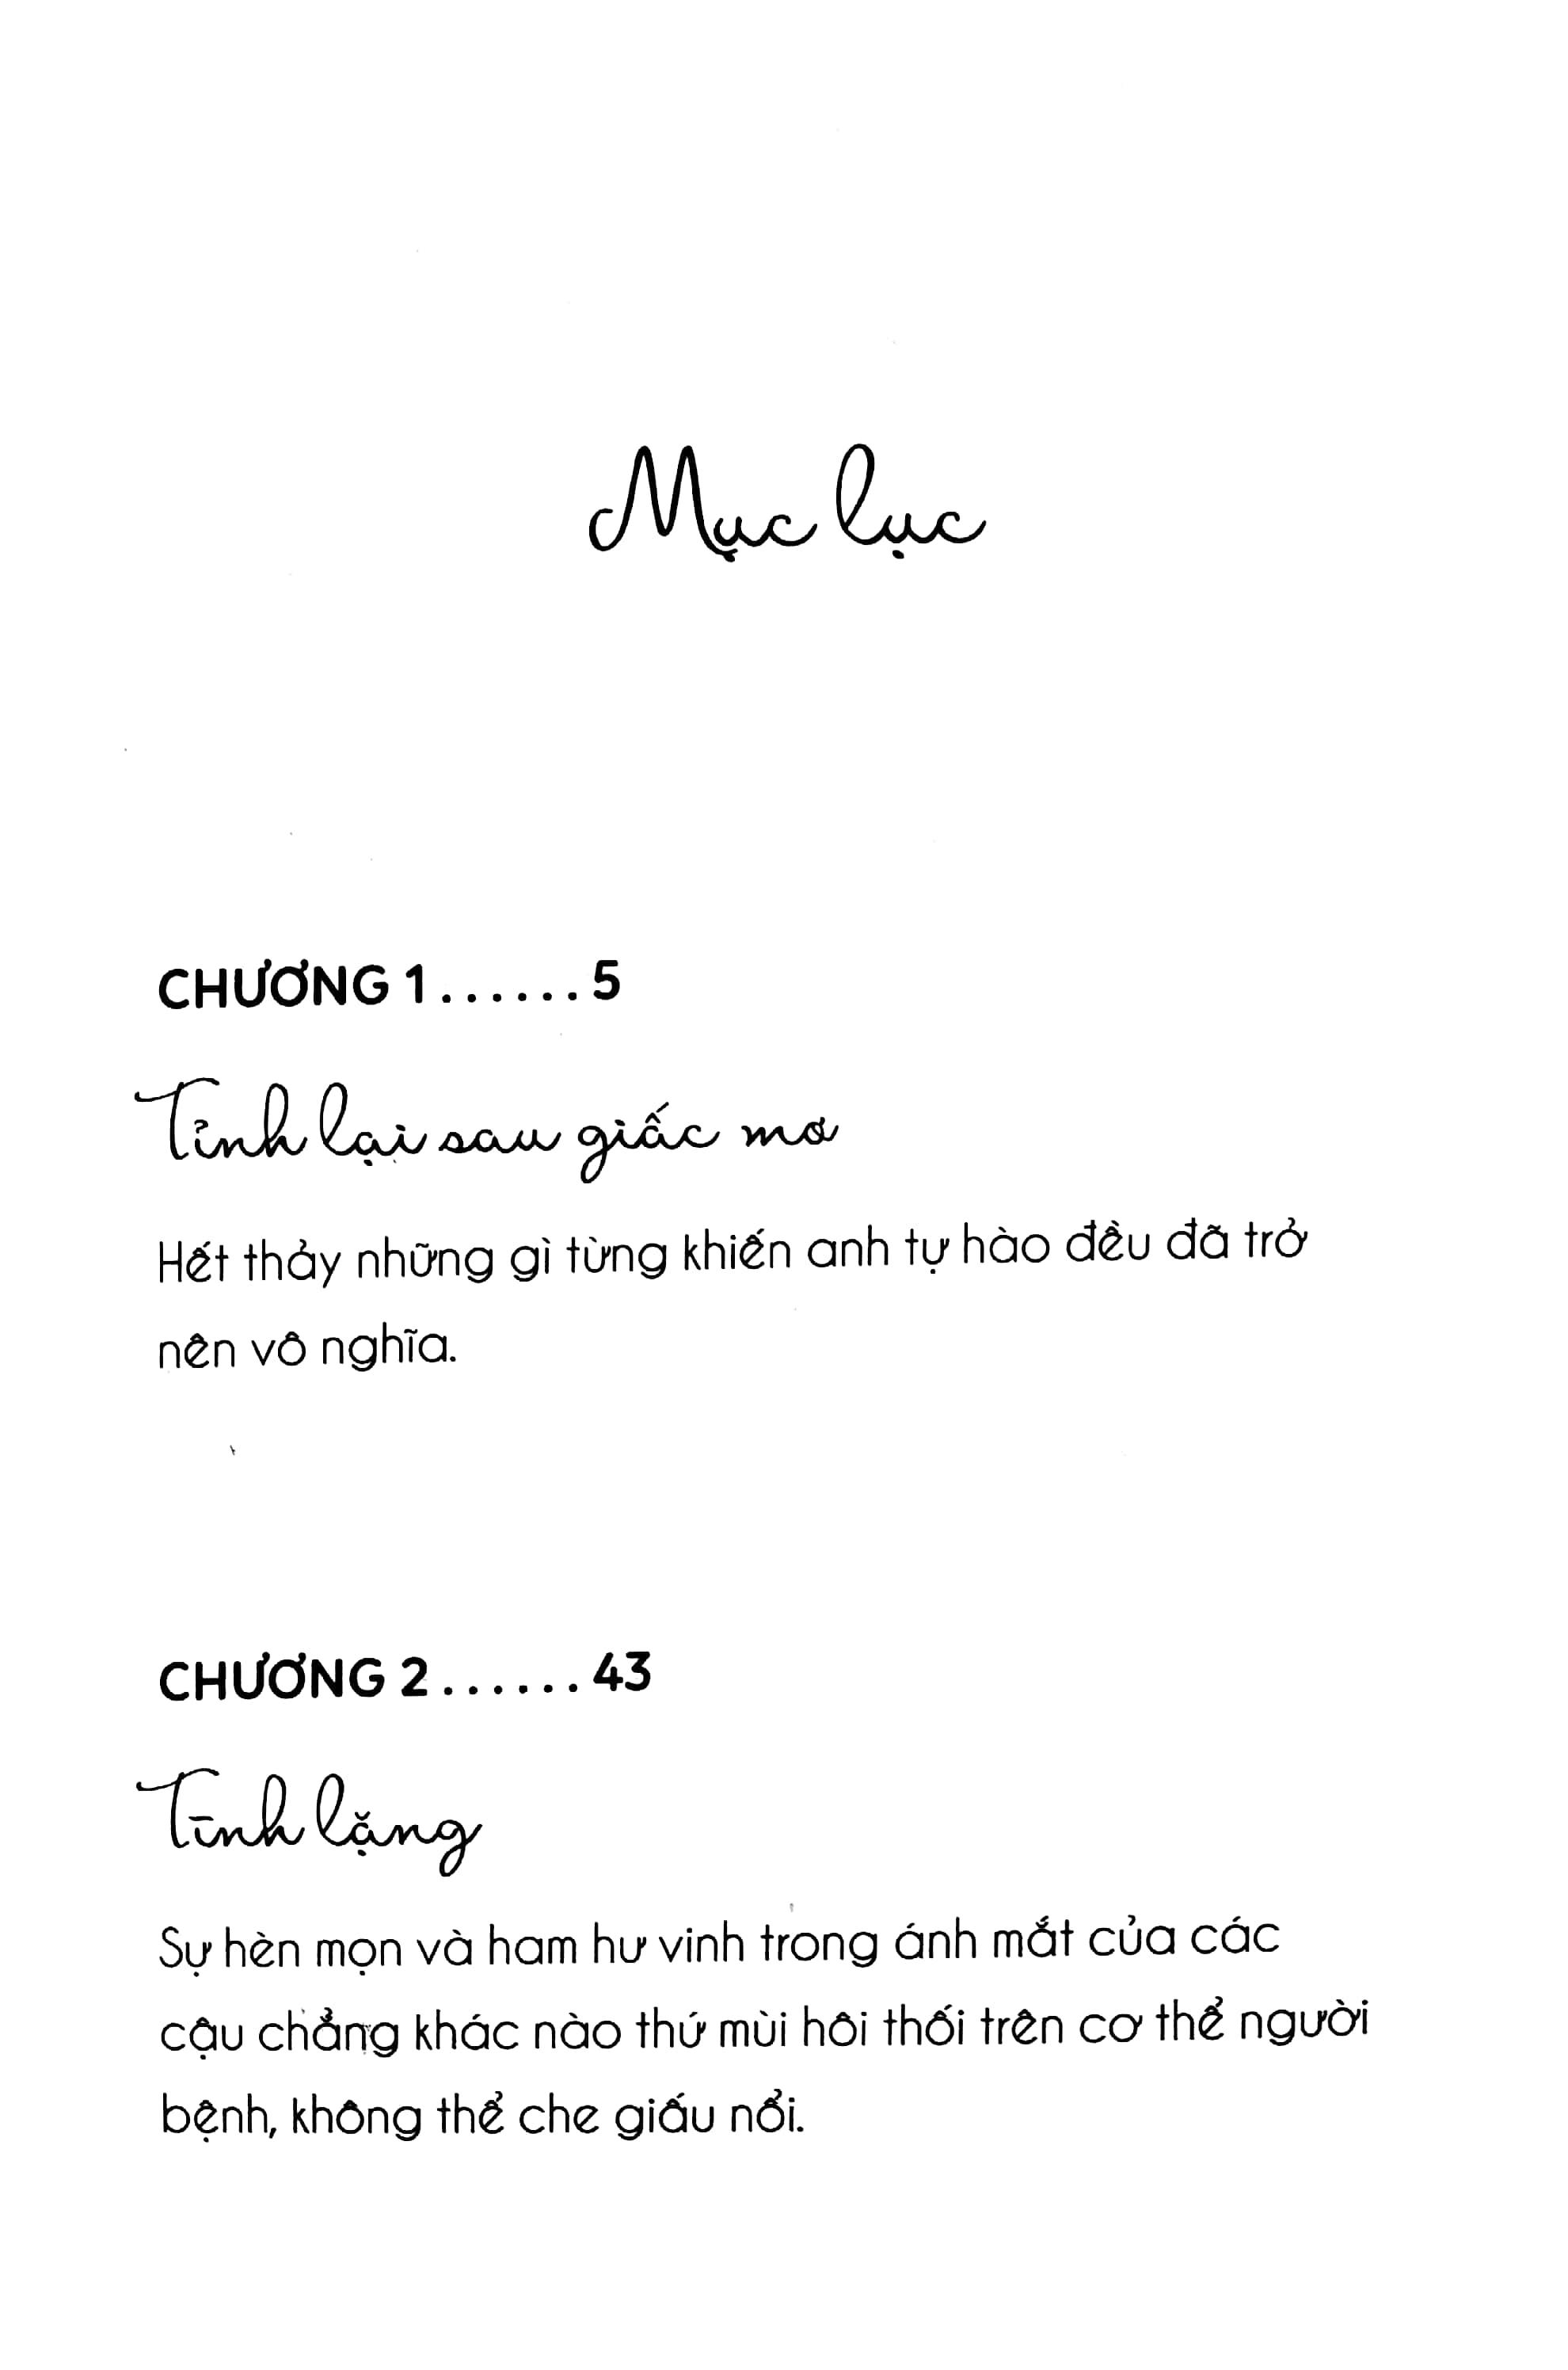 Mục lục
CHƯƠNG 1......5
Tỉnh lại sau giấc mơ
Hết thảy những gì từng khiến anh tự hào đều đã trở
nên vô nghĩa.
CHƯƠNG 2......43
Tĩnh lặng
Sự hèn mọn và ham hư vinh trong ánh mắt của các
cậu chẳng khác nào thứ mùi hôi thối trên cơ thể người
bệnh, không thể che giấu nổi.